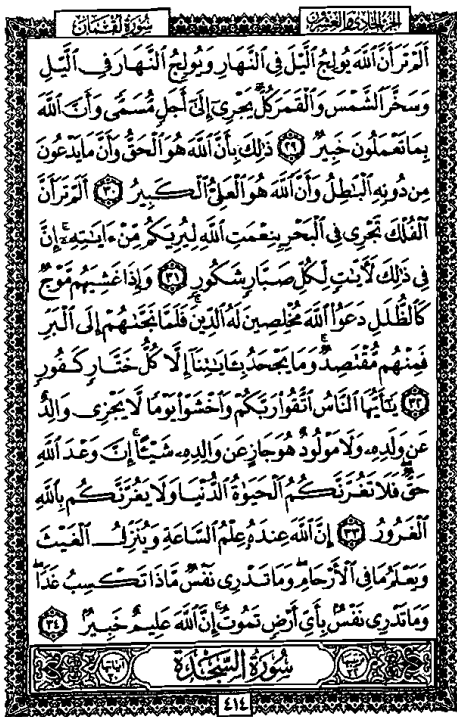 سُورَةُ لُقْمَانَ
الجُزْءُ الحَادِي وَالعِشْرُونَ
أَلَمْ تَرَ أَنَّ ٱللَّهَ يُولِجُ ٱلَّيْلَ فِي ٱلنَّهَارِ وَيُولِجُ ٱلنَّهَارَ فِي ٱلَّيْلِ
وَسَخَّرَ ٱلشَّمْسَ وَٱلْقَمَرَ كُلٌّ يَجْرِىٓ إِلَىٰٓ أَجَلٍ مُّسَمًّى وَأَنَّ ٱللَّهَ
بِمَا تَعْمَلُونَ خَبِيرٌ ٢٩ ذَٰلِكَ بِأَنَّ ٱللَّهَ هُوَ ٱلْحَقُّ وَأَنَّ مَا يَدْعُونَ
مِن دُونِهِ ٱلْبَٰطِلُ وَأَنَّ ٱللَّهَ هُوَ ٱلْعَلِىُّ ٱلْكَبِيرُ ٣٠ أَلَمْ تَرَ أَنَّ
ٱلْفُلْكَ تَجْرِى فِي ٱلْبَحْرِ بِنِعْمَتِ ٱللَّهِ لِيُرِيَكُم مِّنْ ءَايَٰتِهِۦٓ إِنَّ
فِي ذَٰلِكَ لَأٓيَٰتٍ لِّكُلِّ صَبَّارٍ شَكُورٍ ٣١ وَإِذَا غَشِيَهُم مَّوْجٌ
كَٱلظُّلَلِ دَعَوُا۟ ٱللَّهَ مُخْلِصِينَ لَهُ ٱلدِّينَ فَلَمَّا نَجَّىٰهُمْ إِلَى ٱلْبَرِّ
فَمِنْهُم مُّقْتَصِدٌ وَمَا يَجْحَدُ بِـَٔايَٰتِنَآ إِلَّا كُلُّ خَتَّارٍ كَفُورٍ
٣٢ يَٰٓأَيُّهَا ٱلنَّاسُ ٱتَّقُوا۟ رَبَّكُمْ وَٱخْشَوْا۟ يَوْمًا لَّا يَجْزِى وَالِدٌ
عَن وَلَدِهِۦ وَلَا مَوْلُودٌ هُوَ جَازٍ عَن وَالِدِهِۦ شَيْـًٔا إِنَّ وَعْدَ ٱللَّهِ
حَقٌّ فَلَا تَغُرَّنَّكُمُ ٱلْحَيَوٰةُ ٱلدُّنْيَا وَلَا يَغُرَّنَّكُم بِٱللَّهِ
ٱلْغَرُورُ ٣٣ إِنَّ ٱللَّهَ عِندَهُۥ عِلْمُ ٱلسَّاعَةِ وَيُنَزِّلُ ٱلْغَيْثَ
وَيَعْلَمُ مَا فِي ٱلْأَرْحَامِ وَمَا تَدْرِى نَفْسٌ مَّاذَا تَكْسِبُ غَدًا
وَمَا تَدْرِى نَفْسٌۢ بِأَىِّ أَرْضٍ تَمُوتُ إِنَّ ٱللَّهَ عَلِيمٌ خَبِيرٌۢ ٣٤
سُورَةُ السَّجْدَةِ
آياتها ٣٠
٤١٤